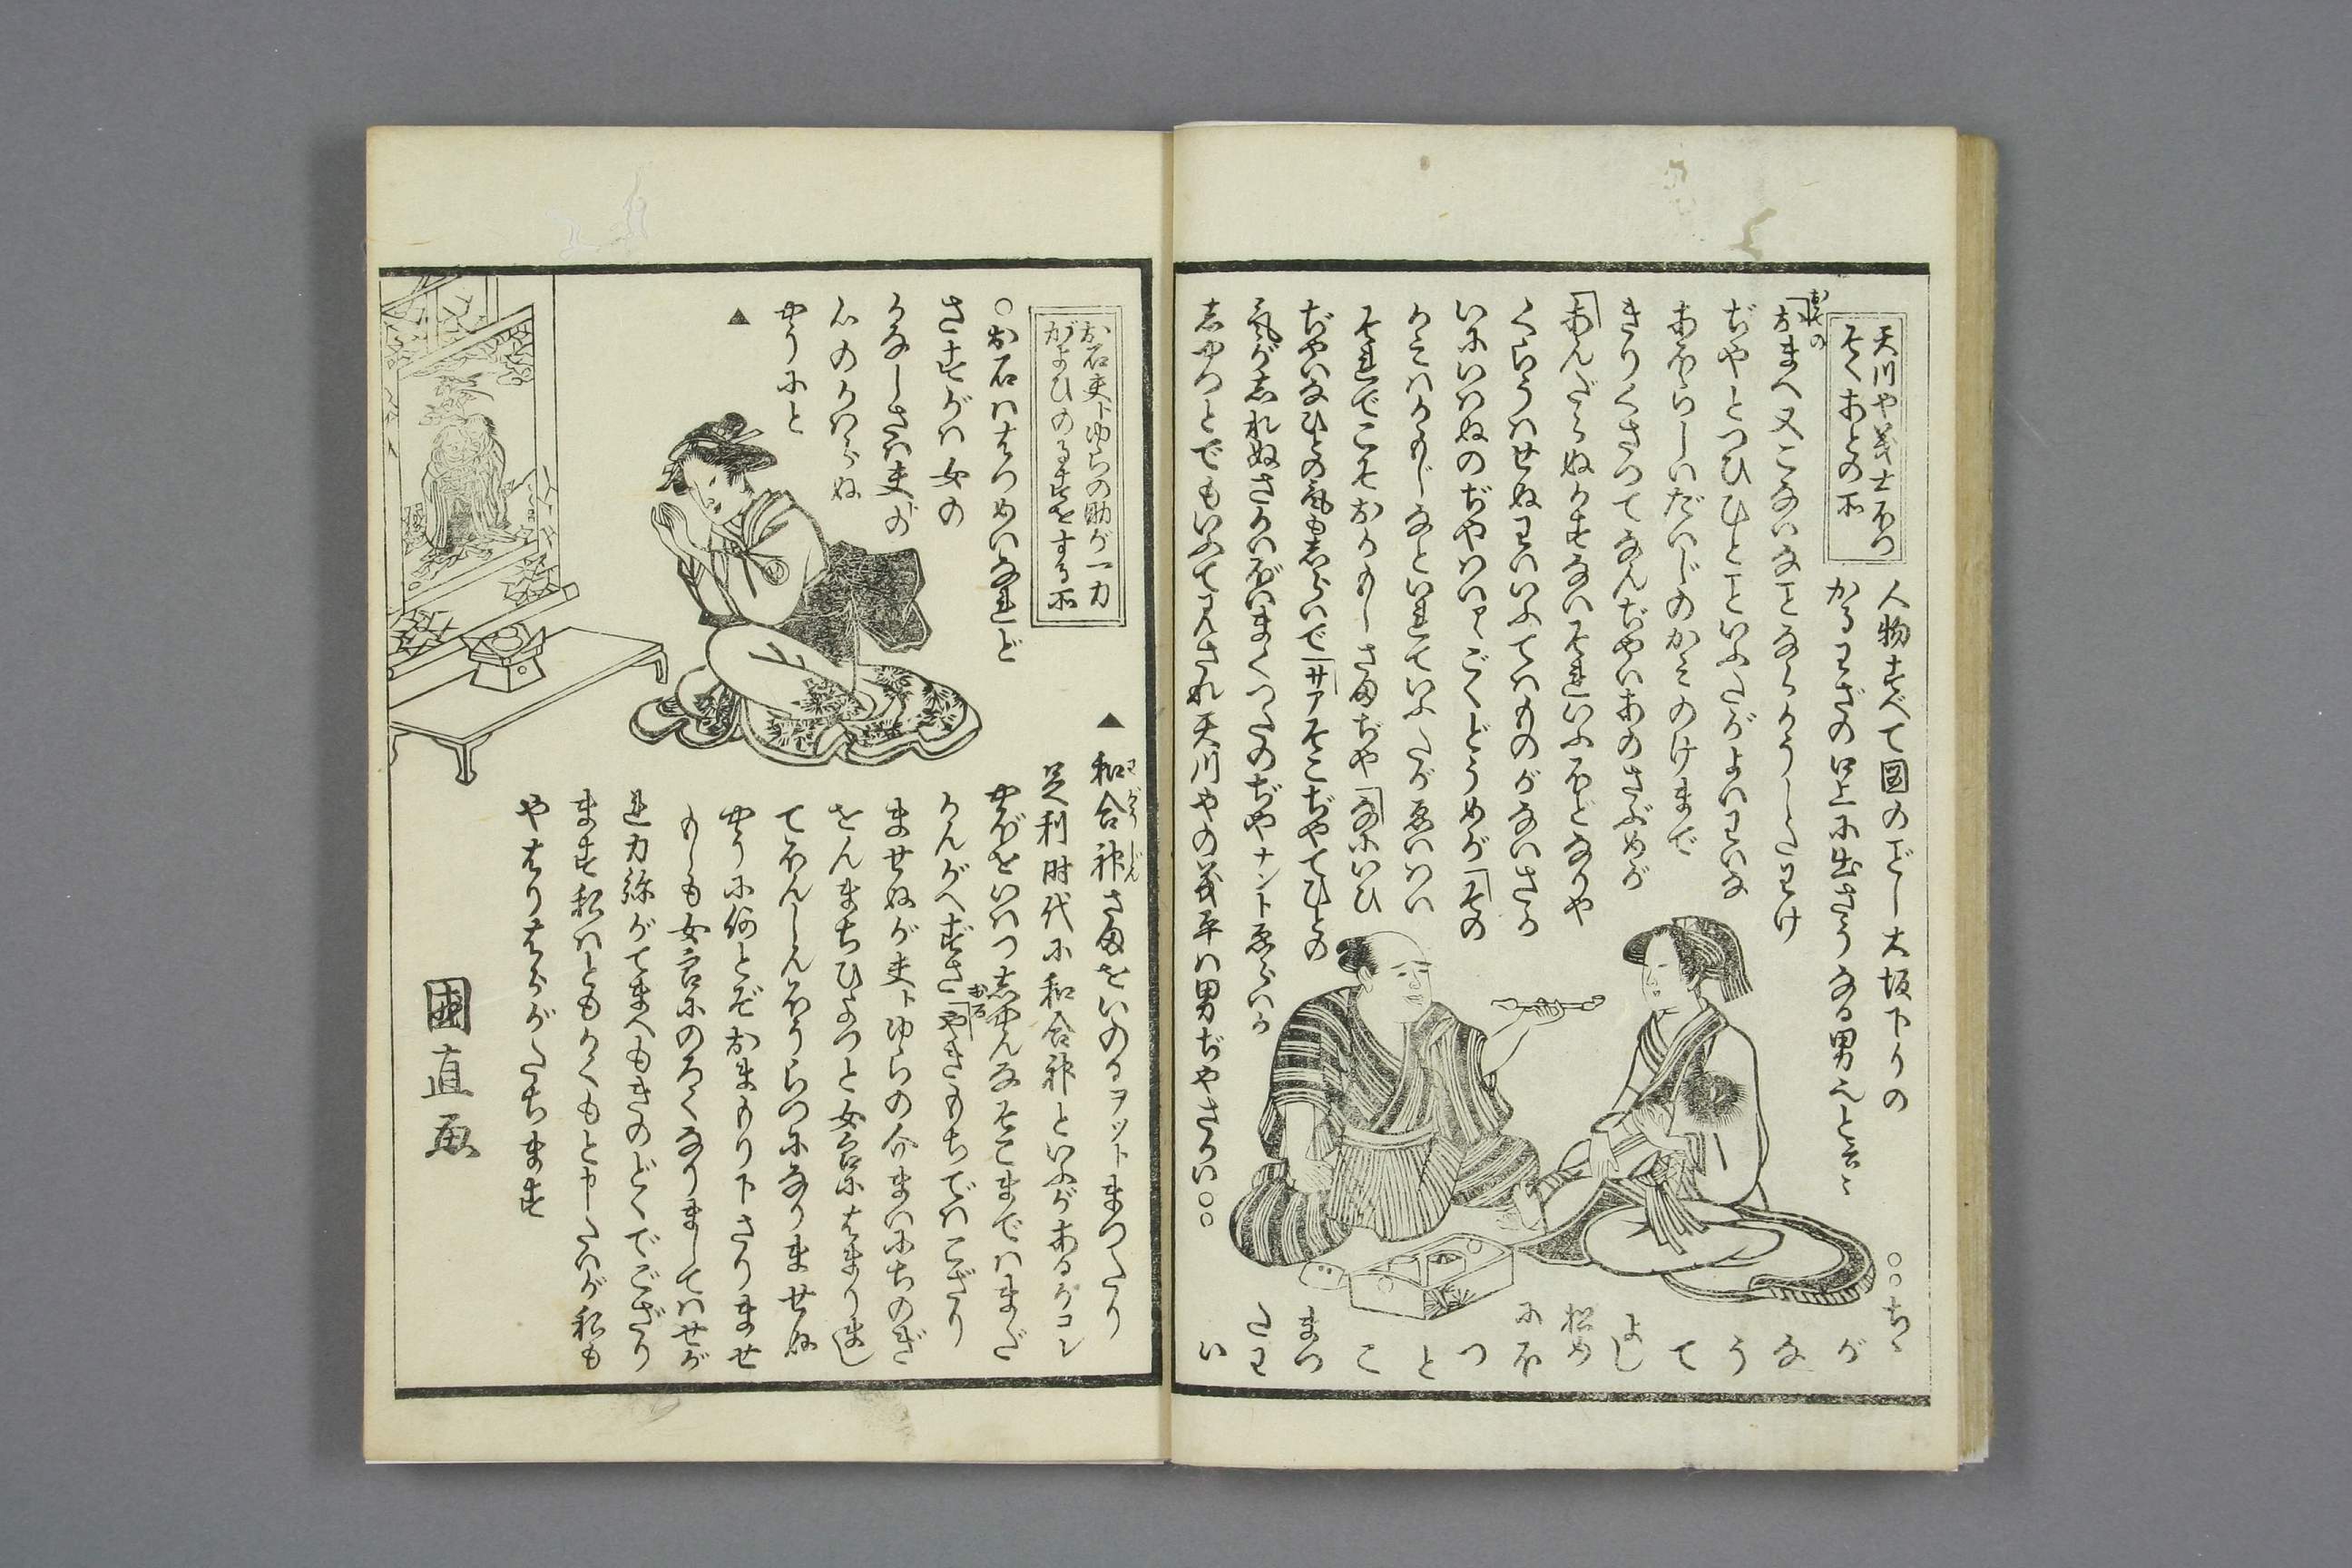 天川や義士ほつ
そくあとの所
人物すべて図のごとし大坂下りの
かるわざの口上に出さうなる男也と云云
おその
「おまへ又こないなことならうかうしたわけ
ぢやとつひひとこといふたがよいわいな
あほらしいだいじのかみのけまで
きりくさつてなんぢやいあのさぶめが
「あんだらぬかすないそれいふほどなりや
くらうはせぬわいいふてはものがないさか
いにいはぬのぢやはいアヽごくどうめが「その
かみはかもじなといれていふたがゑいはい
それでこそおかもじさまぢや「なにいひ
ぢやいなひとの気もしらいで「サアそこぢやてひとの
気がしれぬさかいがいまくつたのぢやナントゑらいか
しゆつとでもいふて見され天川やの義平は男ぢやさかい○○
○○ちと
が
な
う
て
よし
松め
にほ
つ
と
こ
まつ
たわ
い
お石夫ト由らの助が一力
がよひのるすをする所
○お石ははつめいなれど
さすがは女の
かなしさは夫の
心のかはらぬ
やうにと
▲
▲和合神さまをいのるヲツトまつたり
わがうじん
足利時代に和合神といふがあるかコレ
やぼをいはつしやんなそこまではまだ
かんがへずさ
おいし
「やきもちではござり
ませぬが夫トゆらの介まいにちのぎ
をんまちひよつと女郎にはまりまし
てほんしんほうらつになりませぬ
やうに何とぞおまもり下さりませ
もしも女郎にのろくなりましてはせが
れ力弥がてまへもきのどくでござり
ます私はともかくもと申したいが私も
やはりはらがたちます
國直画